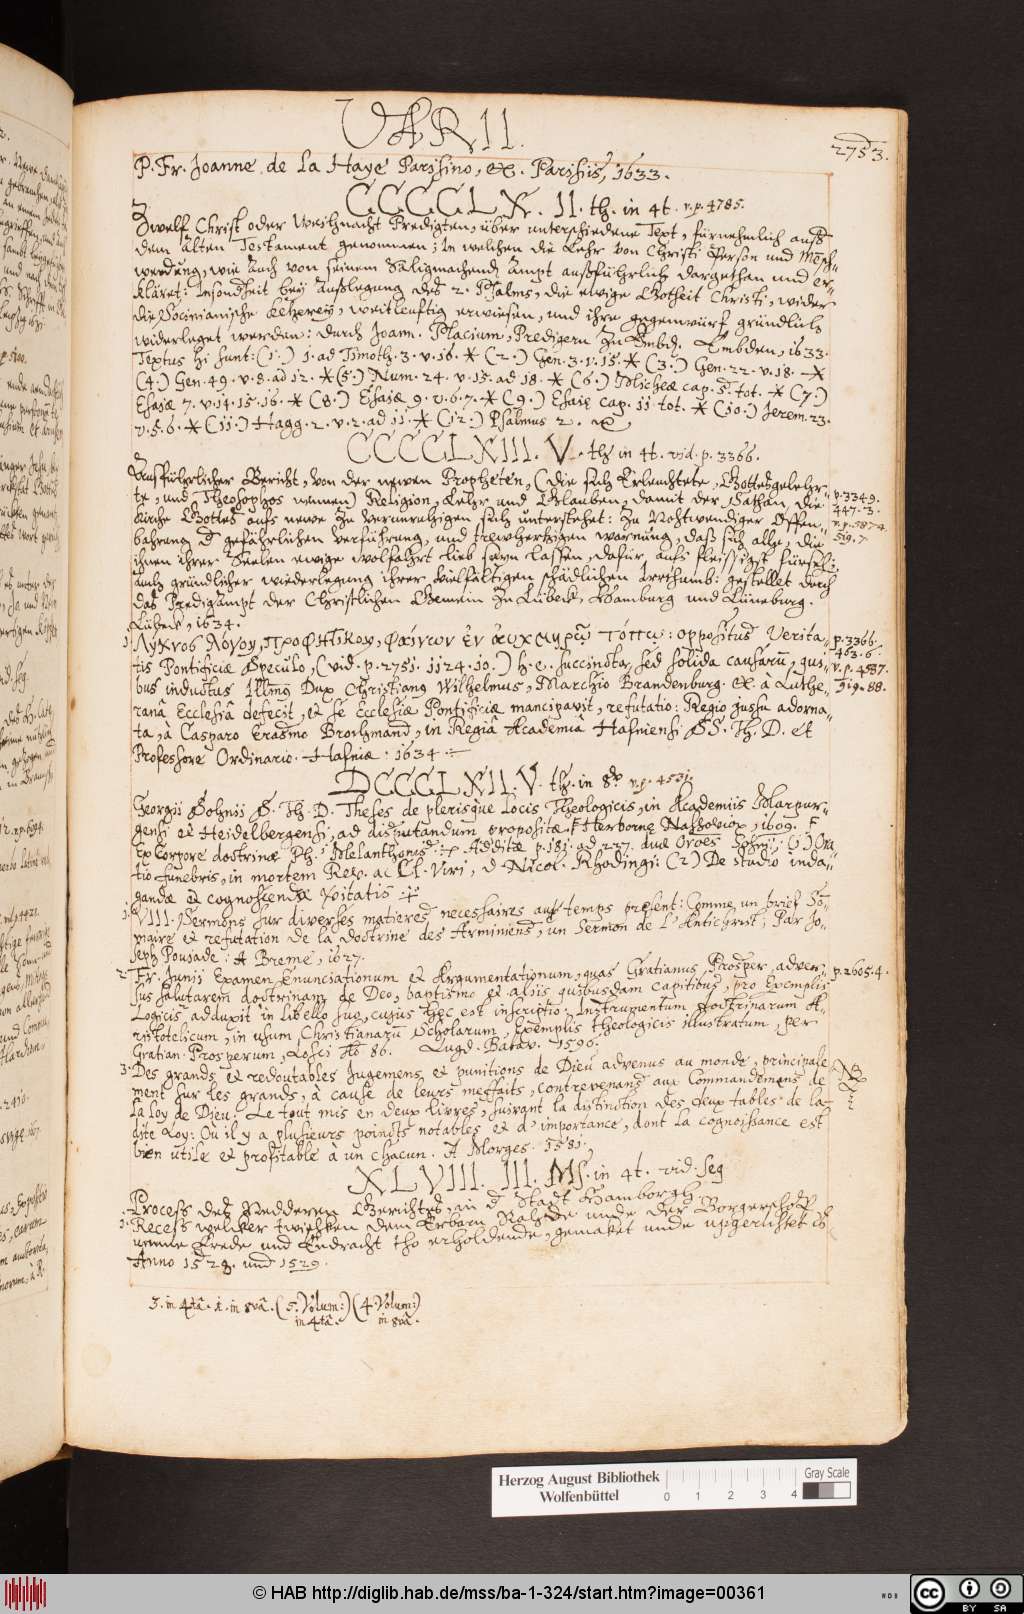 VARII.
2753.
P. Fr. Joanne de la Haye Parisino, ex. Parisiis, 1633.
CCCCLX. II. th. in 4t. v.p. 4785.
Zwelf Christ oder Weihnacht Predigten, über unterschiedene Text, fürnehmlich auß
dem alten Testament genommen; In welchen die Lehr von Christi Person und Mensch-
werdung, wie auch von seinem Säligmachend Ampt außführlich dargethan und er-
kläret: Insondheit bey Außlegung des 2. Psalms, die ewige Gotheit Christi, wider
die Socinianische Ketzerey, weitleuftig erwiesen, und ihre gegenwürf gründlich
widerleget werden: durch Joann. Placium, Predigern zu Embd. Embden, 1633.
Textus hi sunt: (1.) 1. ad Timoth. 3. v. 16. * (2.) Gen. 3. v. 15. * (3.) Gen. 22. v. 18. *
(4.) Gen. 49. v. 8. ad 12. * (5.) Num. 24. v. 15. ad 18. * (6.) Micheæ cap. 5. tot. * (7.)
Esaiæ 7. v. 14. 15. 16. * (8.) Esaiæ 9. v. 6. 7. * (9.) Esaiæ cap. 11 tot. * (10.) Jerem. 23.
v. 5. 6. * (11.) Hagg. 2. v. 2. ad 11. * (12.) Psalmus 2.
CCCCLXIII. V. th in 4t. vid. p. 3366.
Außführlicher Bericht, von der newen Propheten, (die sich Erleuchtete, Gottesgelehr-
te, und Theosophos nennen) Religion, Lehr und Glauben, damit der Sathan, die
Kirche Gottes aufs newe zu verunruhigen sich unterstehet: Zu Nohtwendiger Offen-
bahrung d gefährlichen verführung, und trewhertzigen warnung, daß sich alle, die
ihnen ihrer Seelen ewige wolfahrt lieb seyn lassen, dafür aufs fleissigst fürsehen:
auch gründlicher wiederlegung ihrer vielfältigen schädlichen Irrthumb: gestellet durch
das Predigampt der Christlichen Gemein zu Lübeck, Hamburg und Lüneburg.
Lübeck, 1634.
p. 3349.
447. 3.
v. p. 5874.
519. 7
1. Λύχνος Λόγου, προφητικου, φαίνων ἐν αυχμηρῷ τόπω: oppositus Verita-
tis Pontificiæ Speculo, (vid. p. 2751. 1124. 10.) h. e. succincta, sed solida causarū, qui-
bus inductus Illm9 Dux Christian9 Wilhelmus, Marchio Brandenburg. ex. à Luthe-
ranâ Ecclesiâ defecit, et se Ecclesiæ Pontificiæ mancipavit, refutatio: Regio jussu adorna-
ta, à Casparo Erasmo Brochmand, in Regiâ Academiâ Hafniensi SS. Th. D. et
Professore Ordinario. Hafniæ. 1634.
p. 3366.
463. 6.
v. p. 4587.
519. 88.
DCCCLXII. V. th. in 8º v.p. 4531.
Georgii Sohnii S. Th. D. Theses de plerisque Locis Theologicis, in Academiis Marpur-
gensi et Heidelbergensi, ad disputandum propositæ. Herbornę Nassoviorū, 1609.
Ex corpore doctrinæ Ph. Melanthonis. Additæ p. 181. ad 237. duæ Oroes Sohnii: (1) Ora-
tio funebris, in mortem Rev. ac Cl. Viri, D Nicol. Rhodingii: (2) De studio inda-
gandæ et cognoscendæ veritatis
1. VIII. Sermons sur diverses matieres necessaires aux temps present: Comme un brief So-
maire et refutation de la doctrine des Arminiens, un Sermon de l'Antichrist; Par Jo-
seph Poujade: A Breme, 1627.
2. Fr. Junii Examen Enunciationum et Argumentationum, quas Gratianus Prosper adver-
sus salutarem doctrinam de Deo, baptismo et aliis quibusdam capitibus, pro Exemplis
Logicis adduxit in libello suo, cujus hæc est inscriptio: Instrumentum doctrinarum A-
ristotelicum, in usum Christianarū Scholarum, Exemplis theologicis illustratum, per
Gratian. Prosperum, Losci Ao 86. Lugd. Batav. 1596.
p. 2605. 4.
3. Des grands et redoutables Jugemens et punitions de Dieu advenus au monde, principale-
ment sur les grands, à cause de leurs meffaits, contrevenans aux Commandemens de
la loy de Dieu: Le tout mis en deux livres, suivant la distinction des deux tables de la-
dite Loy: Où il y a plusieurs poincts notables et d'importance, dont la cognoissance est
bien utile et profitable à un chacun. A Morges. 1581.
XLVIII. III. Ms. in 4t. vid. seg
Process des Nedderen Gerichtes, in d Stadt Hamborgh.
2. Recess welker twischen dem Erbarn Rahde unde der Borgerschop
umme Frede und Endracht tho erholdende, gemaket unde upgerichtet is
Anno 1528. und 1529.
3. in 4tâ. 1. in 8vâ. (5. Volum:) (4. Volum:)
in 4tâ. in 8vâ.
Herzog August Bibliothek
Wolfenbüttel
0 1 2 3 4
Gray Scale
© HAB http://diglib.hab.de/mss/ba-1-324/start.htm?image=00361
cc BY SA